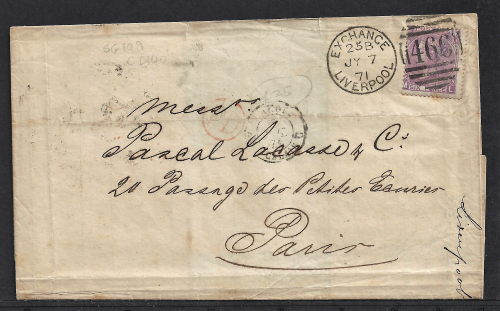 SG109
EXCHANGE
23B
JY 7
71
LIVERPOOL
466
Messrs
Pascal Lacasse & Co
20 Passage des Petites Ecuries
Paris
Liverpool